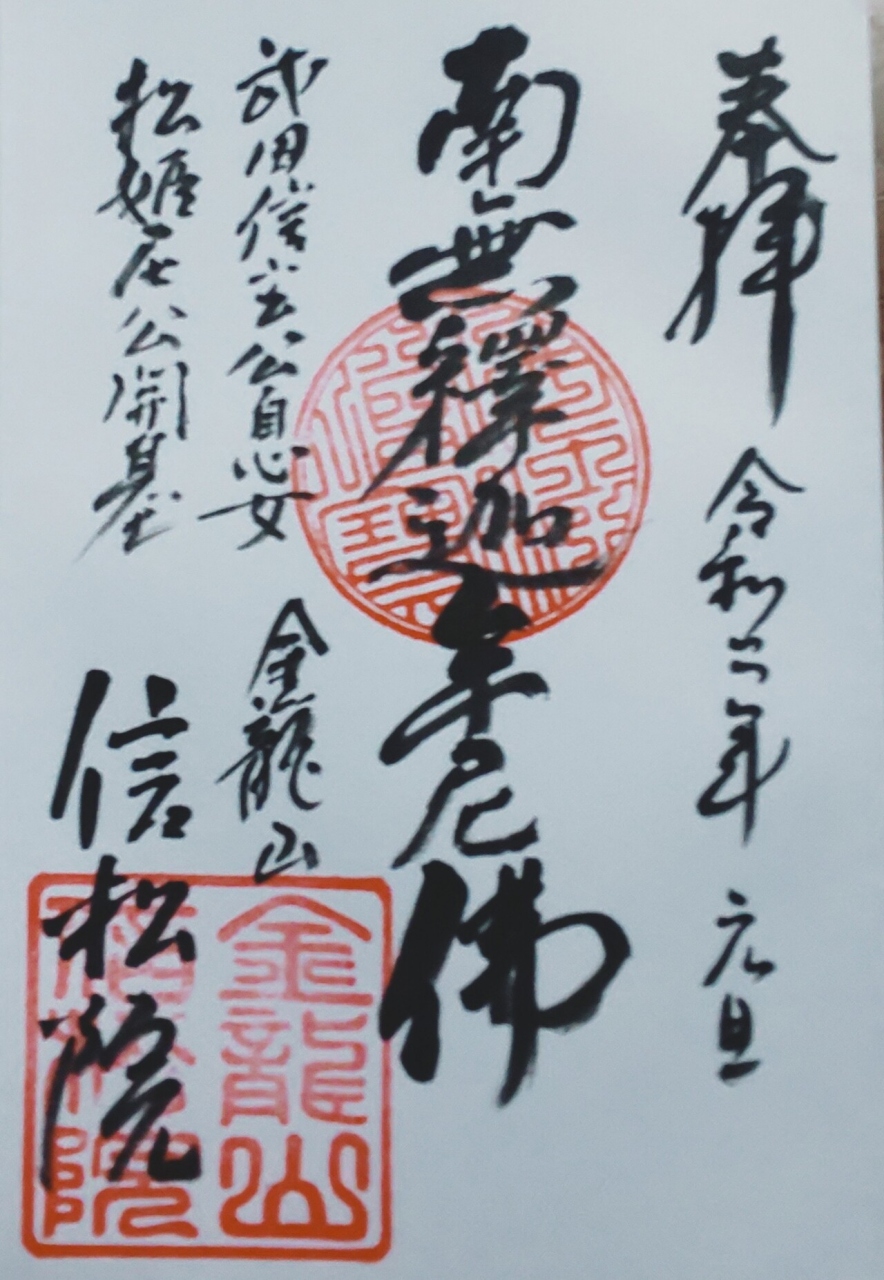 奉拝
令和二年 元旦
南無釋迦牟尼佛
武田信玄公息女
松姫君公開基
金龍山
信松院
金龍山
信松院